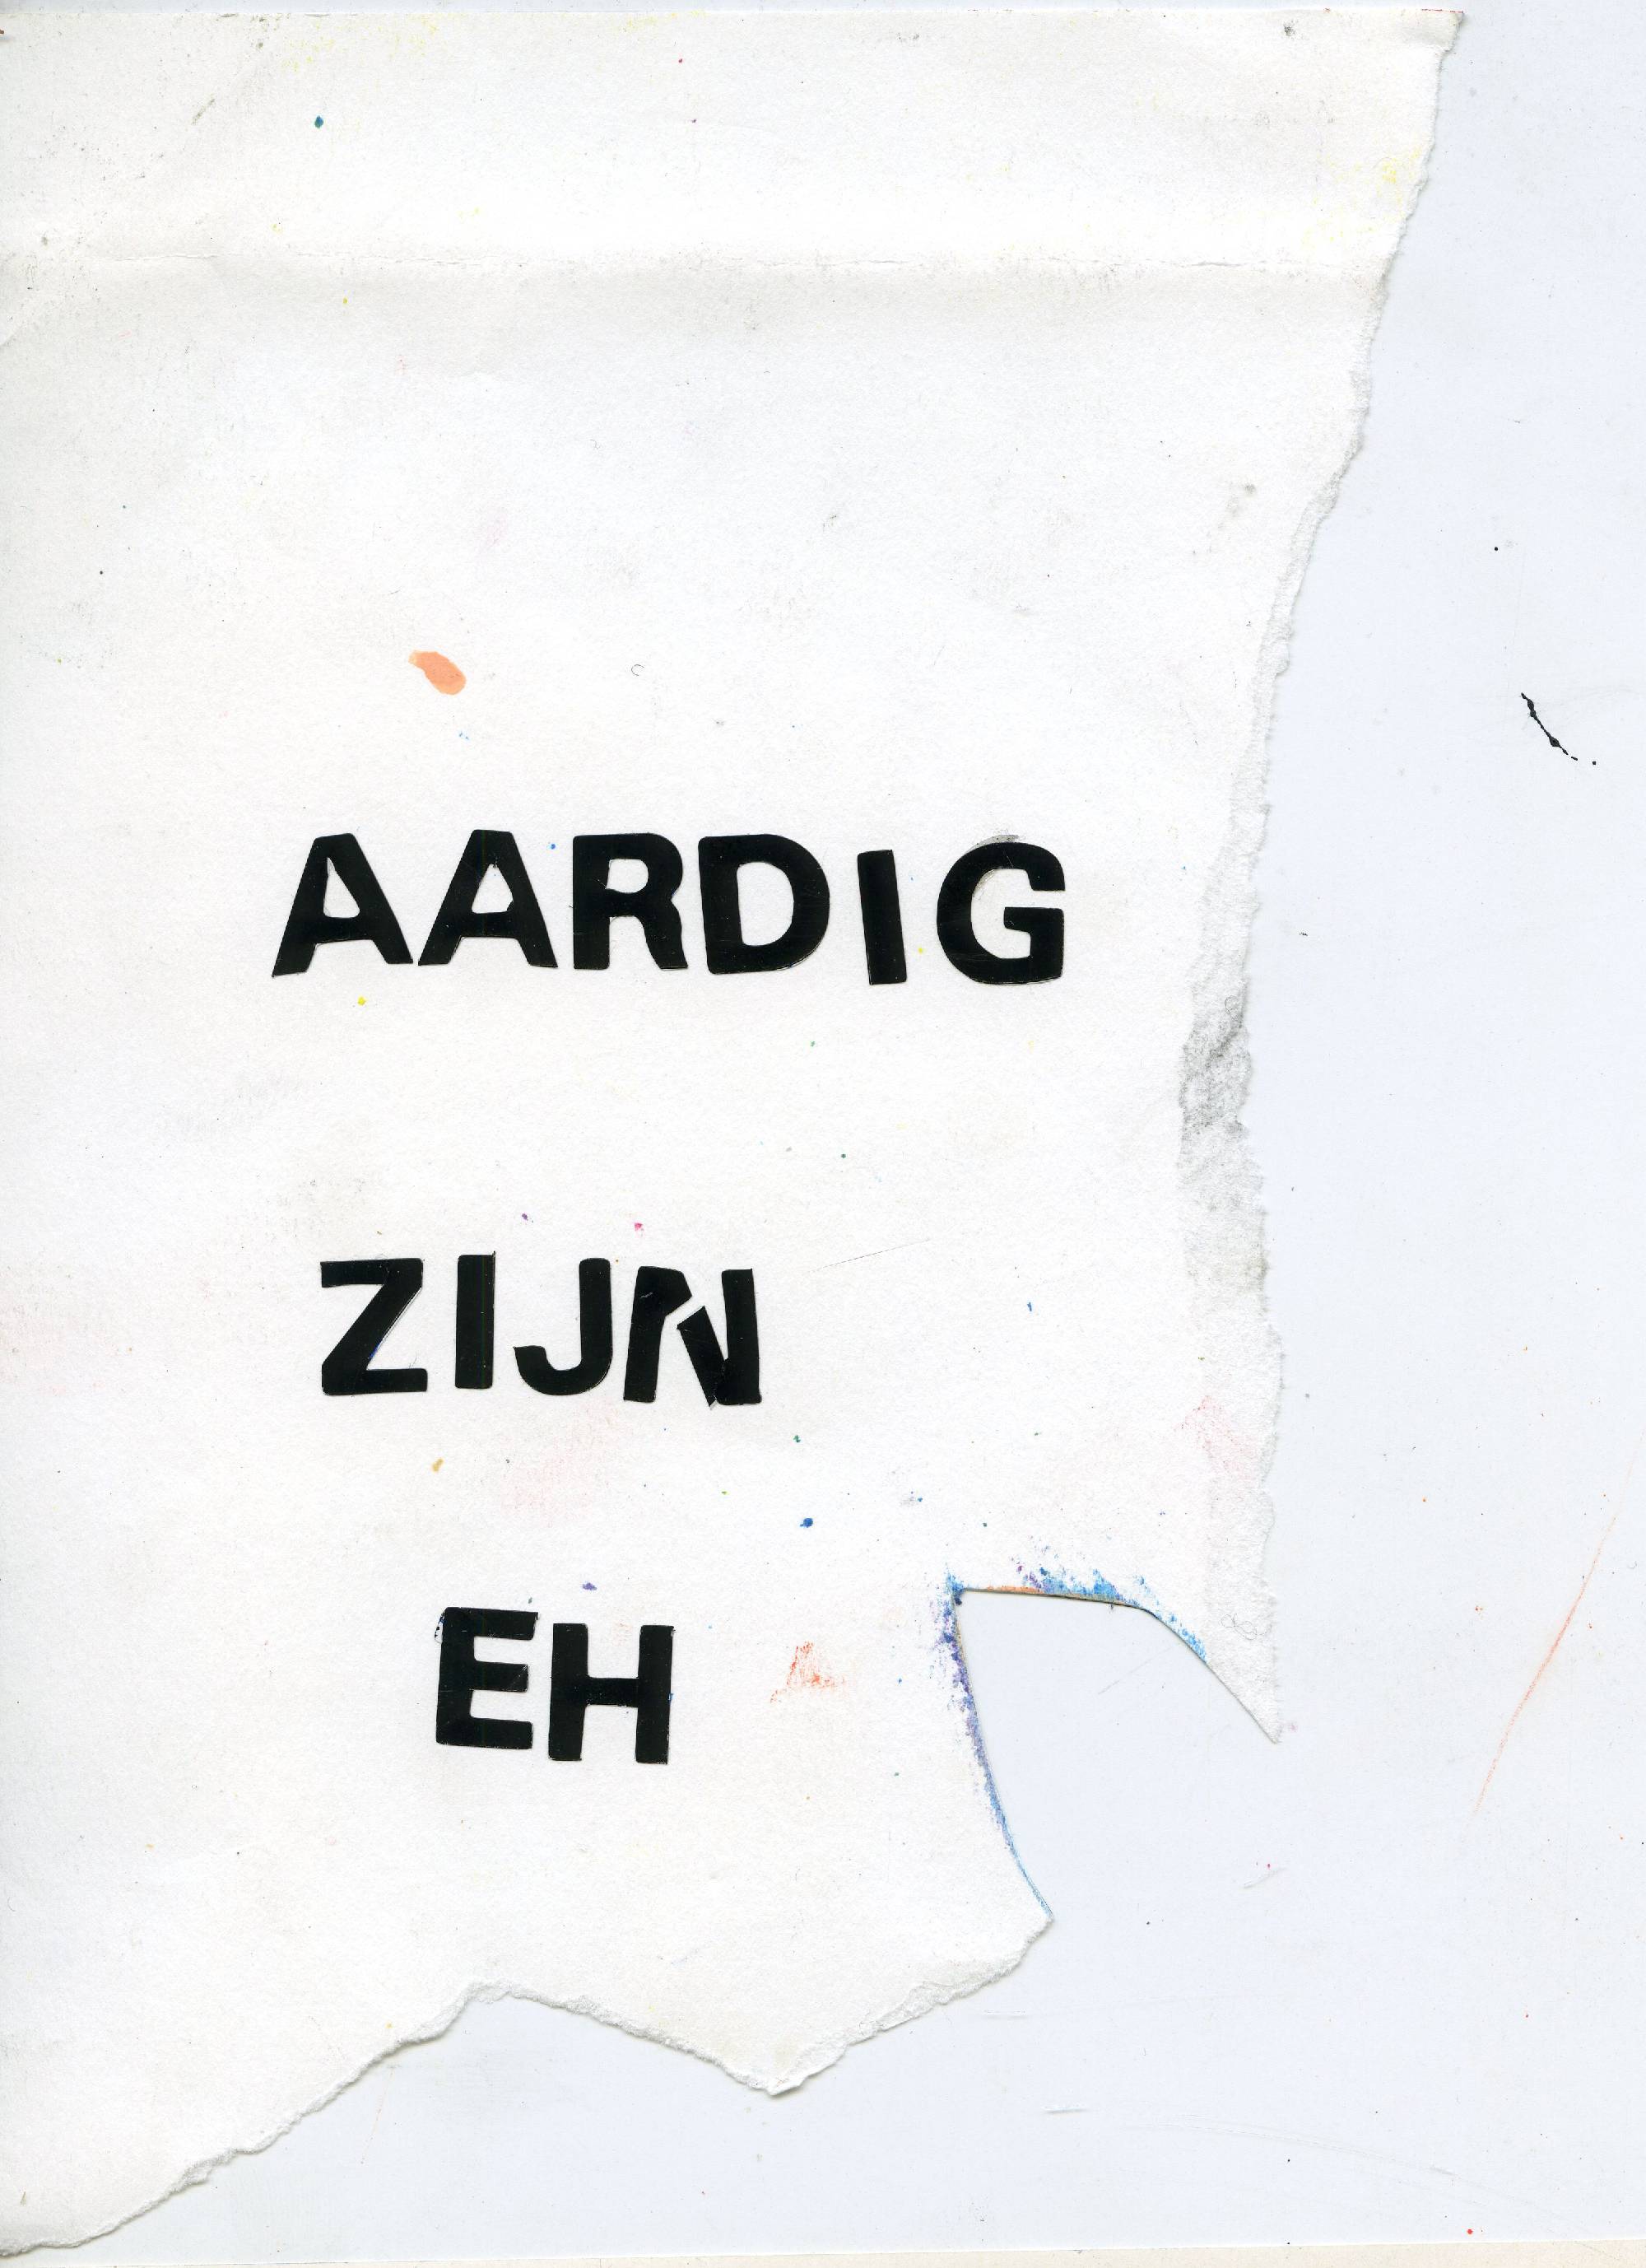 AARDIG
ZIJN
EH